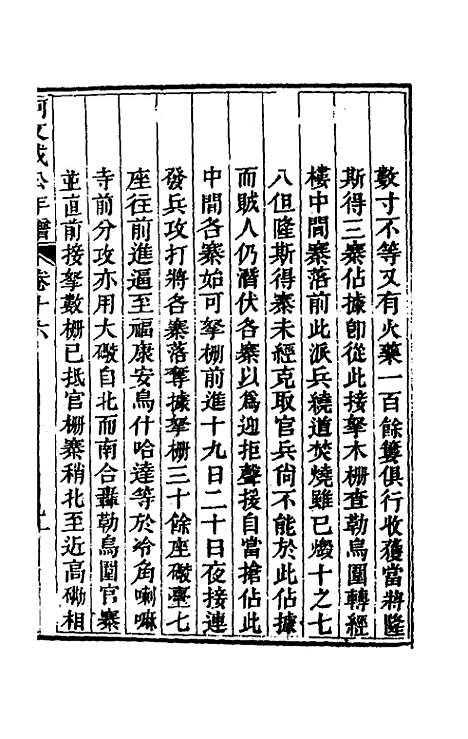 數寸不等又有火藥一百餘簍俱行收獲當將隆
斯得三寨佔據卽從此接拏木柵查勒烏圍轉經
樓中間寨落前此派兵繞道焚燒雖已燬十之七
八但隆斯得寨未經克取官兵尙不能於此佔據
而賊人仍潛伏各寨以爲迎拒聲援自當搶佔此
中間各寨始可拏柵前進十九日二十日夜接連
發兵攻打將各寨落奪據拏柵三十餘座礮臺七
座往前進逼至福康安烏什哈達等於冷角喇嘛
寺前分攻亦用大礮自北而南合轟勒烏圍官寨
並直前接拏數柵已抵官柵寨稍北至近高磡相
阿文成公年譜 卷十六